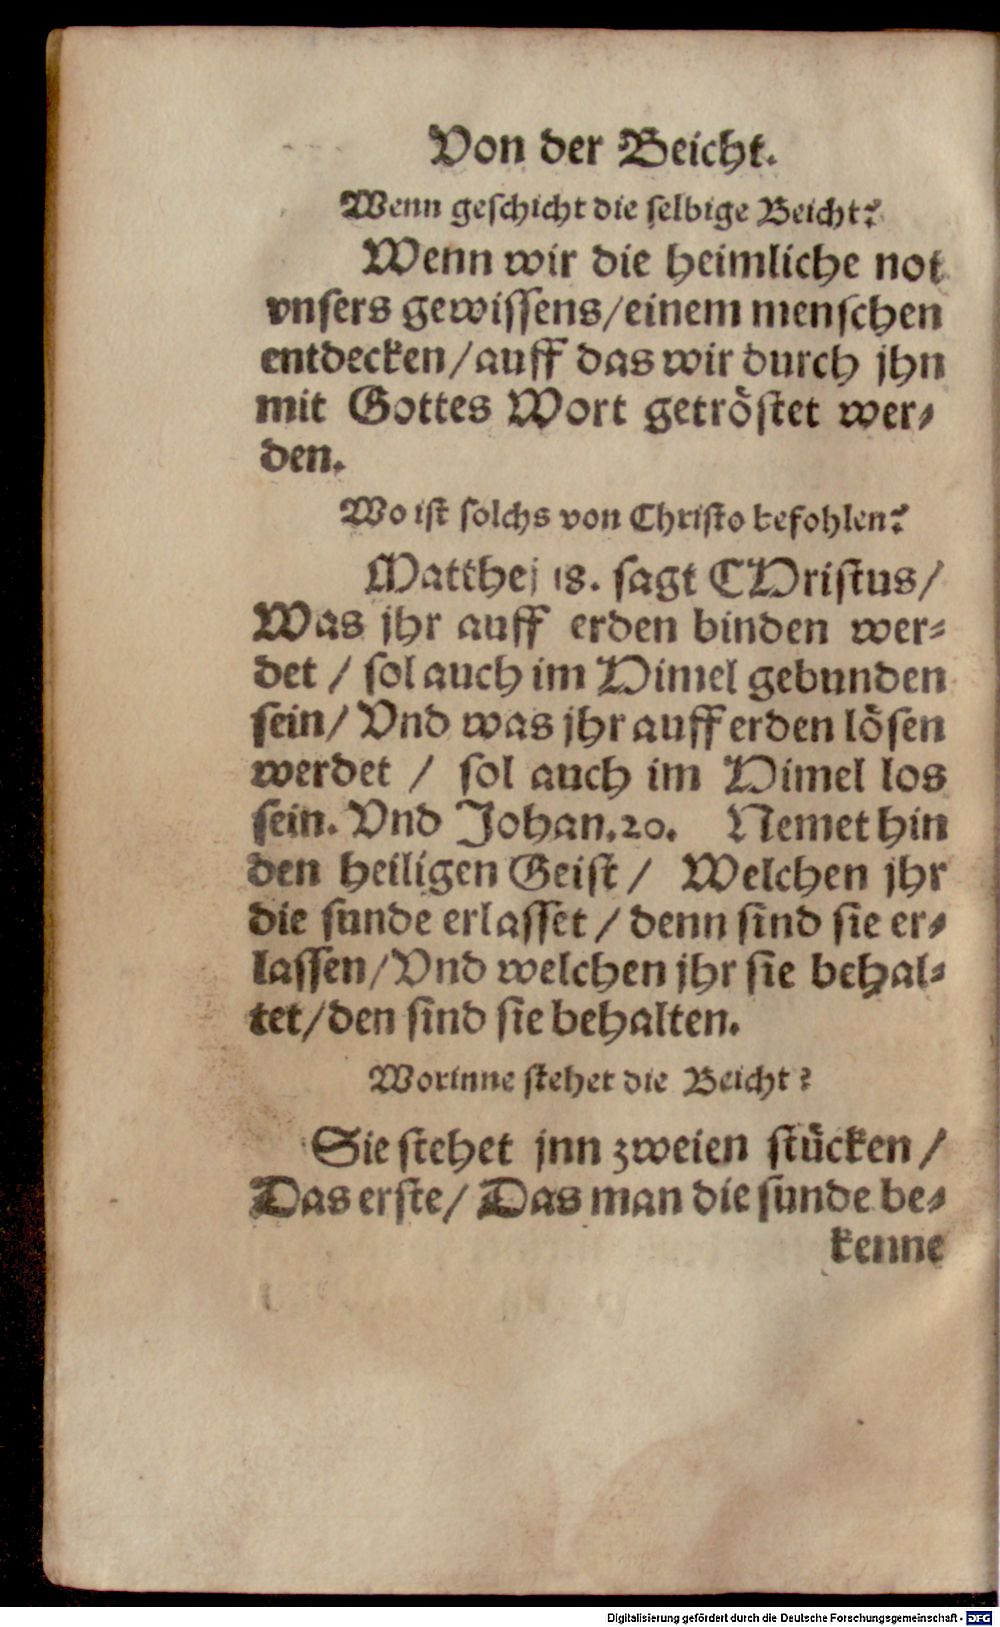 Von der Beicht.
Wenn geſchicht die ſelbige Beicht?
Wenn wir die heimliche not
vnſers gewiſſens/einem menſchen
entdecken/auff das wir durch jhn
mit Gottes Wort getröſtet wer⸗
den.
Wo iſt ſolchs von Chriſto befohlen?
Matthej 18. ſagt CHriſtus/
Was jhr auff erden binden wer⸗
det / ſol auch im Himel gebunden
ſein/ Vnd was jhr auff erden löſen
werdet / ſol auch im Himel los
ſein. Vnd Johan.20. Nemet hin
den heiligen Geiſt / Welchen jhr
die ſunde erlaſſet / denn ſind ſie er⸗
laſſen/Vnd welchen jhr ſie behal⸗
tet/den ſind ſie behalten.
Worinne ſtehet die Beicht?
Sie ſtehet jnn zweien ſtücken /
Das erſte/ Das man die ſunde be⸗
kenne
Digitalisierung gefördert durch die Deutsche Forschungsgemeinschaft - DFG